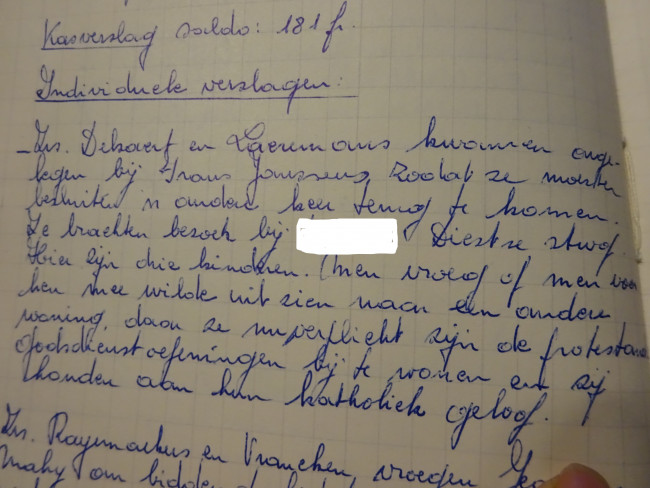 Kasverslag saldo: 181 fr.
Individuele verslagen:
- Zrs. Delvaert en Laeremans kwamen onge-
legen bij Frans Janssens, zodat ze moesten
besluiten 'n andere keer terug te komen.
Ze brachten bezoek bij Diestse stwg.
Hier zijn drie kinderen. Men vroeg of men voor
hen mee wilde uit zien naar een andere
woning, daar ze nu verplicht zijn de protestan
godsdienstoefeningen bij te wonen en zij
houden aan hun katholiek geloof.
Zrs. Raymaekers en Vrancken, vroegen
Mahy om bidden